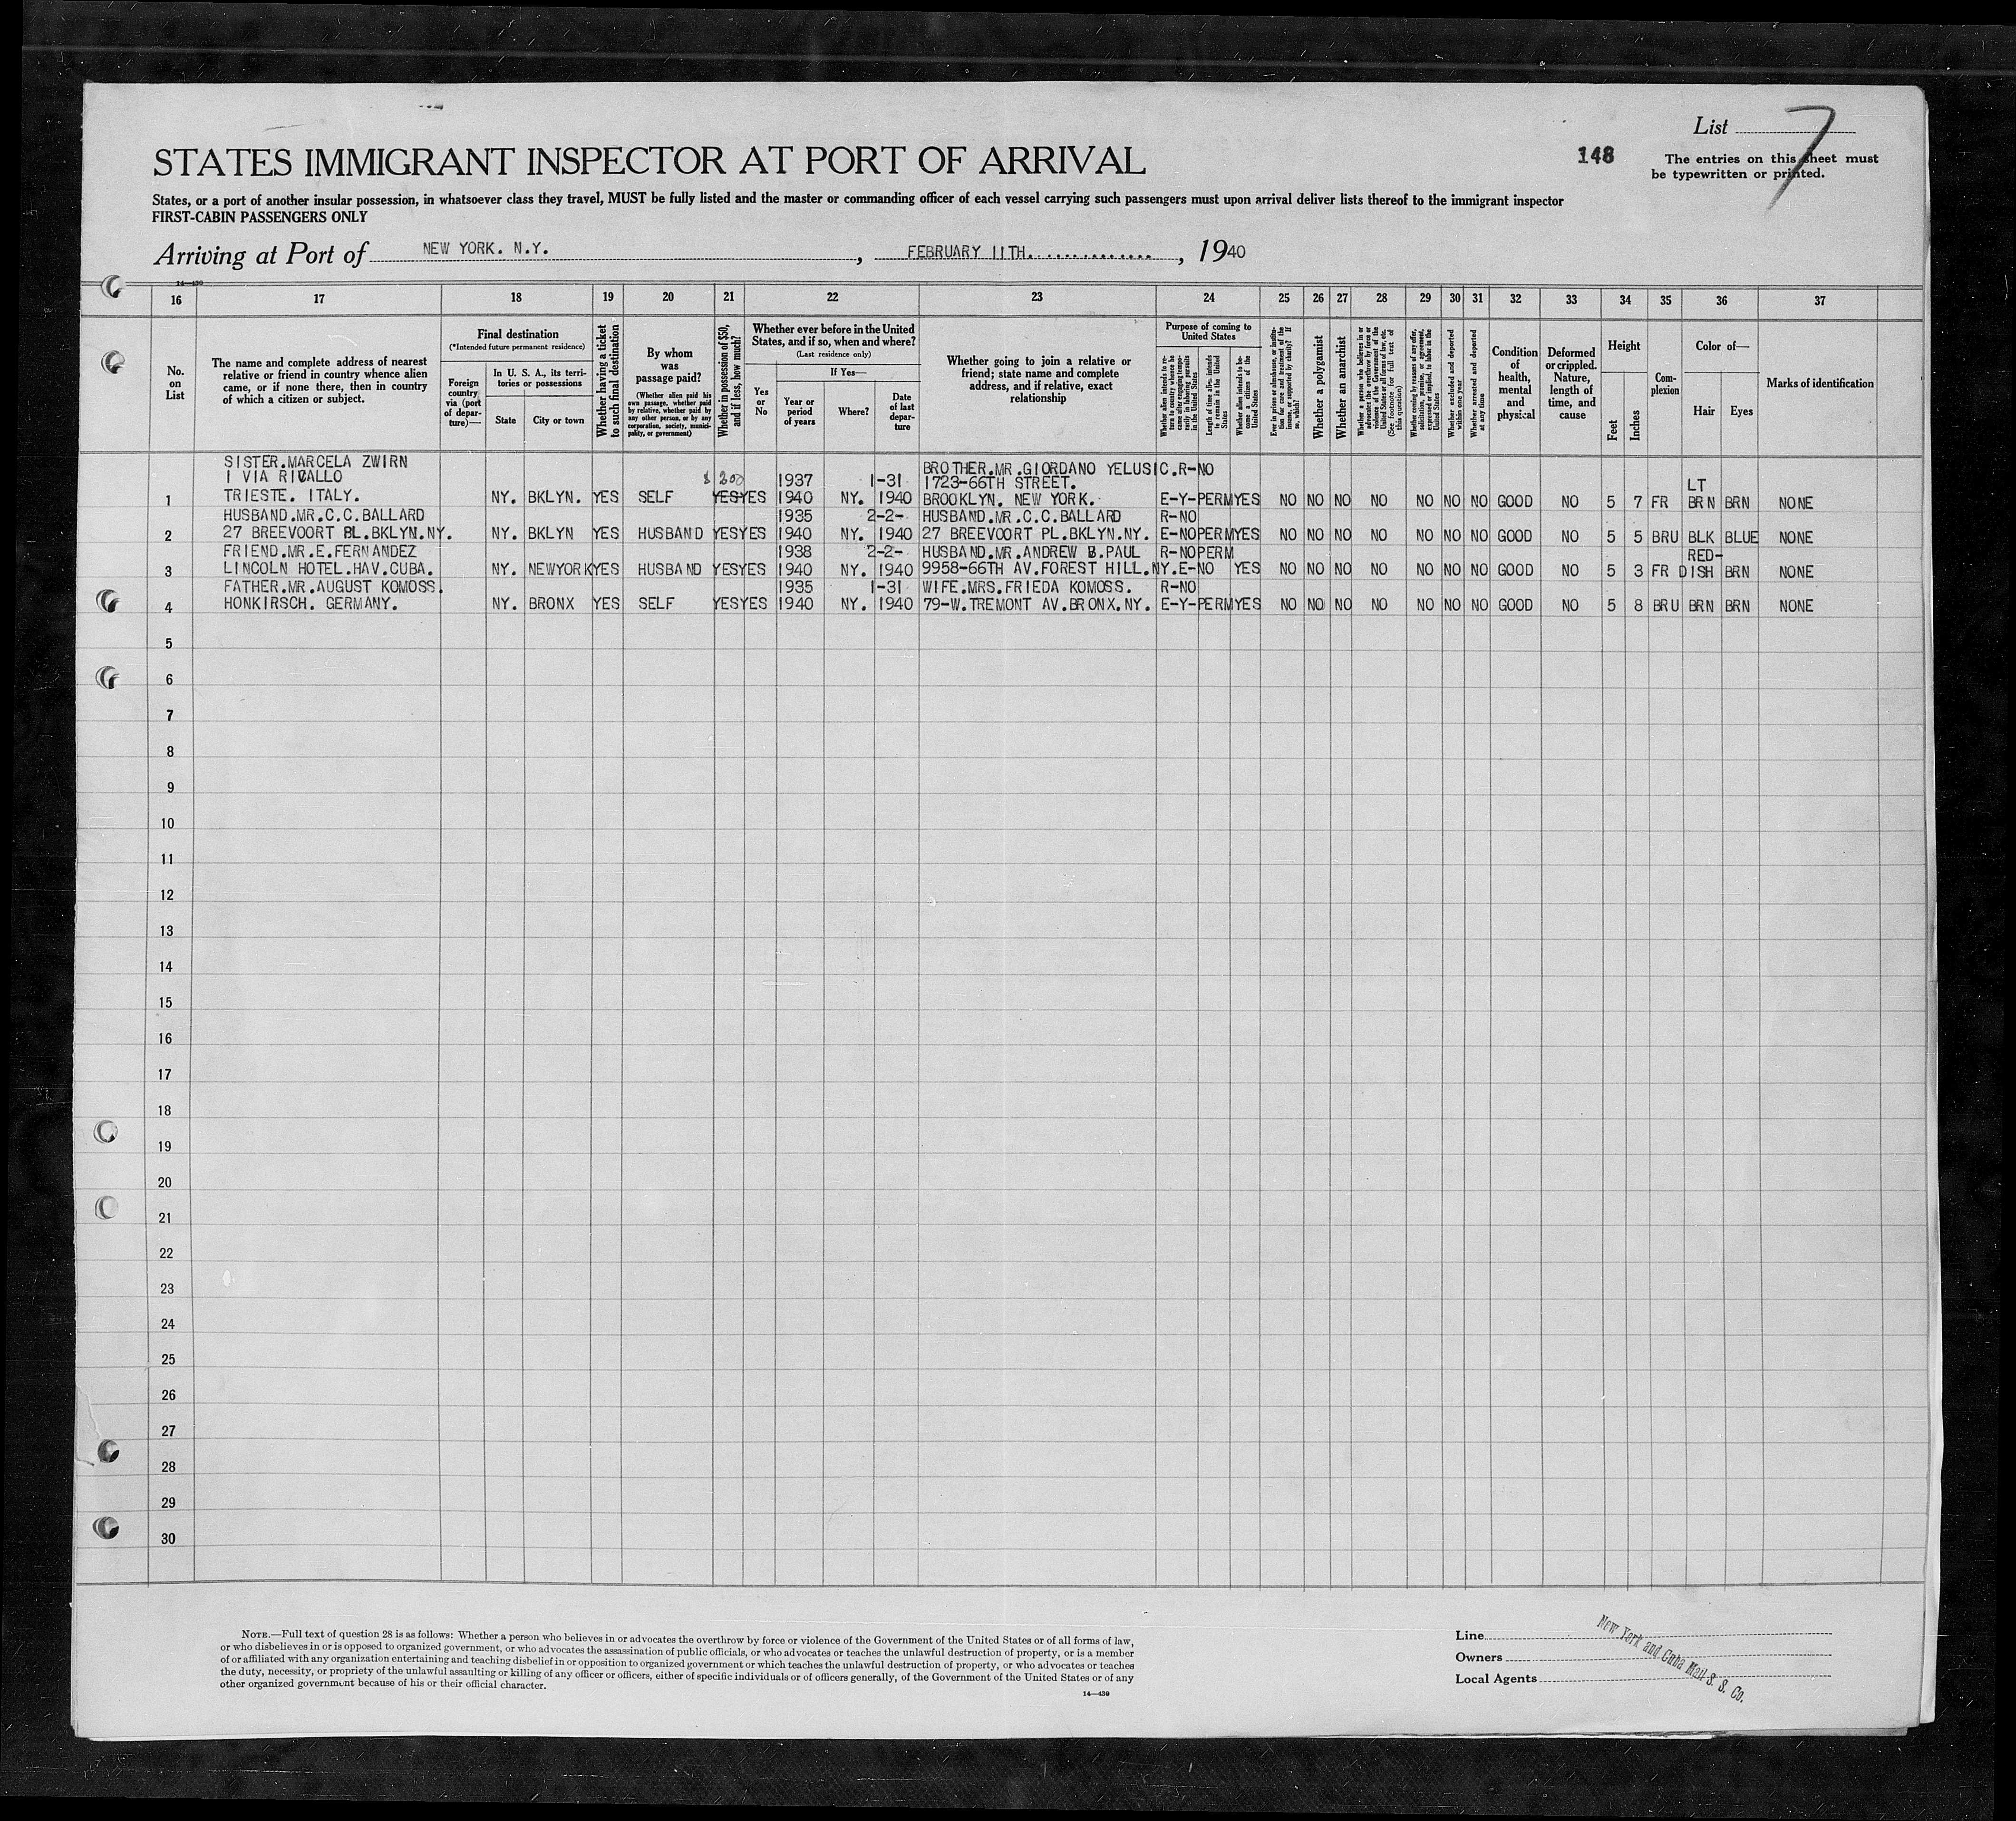 List 7
STATES IMMIGRANT INSPECTOR AT PORT OF ARRIVAL
148
The entries on this sheet must
be typewritten or printed.
States, or a port of another insular possession, in whatsoever class they travel, MUST be fully listed and the master or commanding officer of each vessel carrying such passengers must upon arrival deliver lists thereof to the immigrant inspector
FIRST-CABIN PASSENGERS ONLY
Arriving at Port of NEW YORK. N.Y. , FEBRUARY 11TH. , 1940
14—430
16 17 18 19 20 21 22 23 24 25 26 27 28 29 30 31 32 33 34 35 36 37
No. on List
The name and complete address of nearest relative or friend in country whence alien came, or if none there, then in country of which a citizen or subject.
Final destination
(*Intended future permanent residence)
Foreign country via (port of departure)—
In U. S. A., its territories or possessions
State
City or town
Whether having a ticket to such final destination
By whom was passage paid?
(Whether alien paid his own passage, whether paid by relative, whether paid by any other person, or by any corporation, society, municipality, or government)
Whether in possession of $50, and if less, how much?
Whether ever before in the United States, and if so, when and where?
(Last residence only)
Yes or No
If Yes—
Year or period of years
Where?
Date of last departure
Whether going to join a relative or friend; state name and complete address, and if relative, exact relationship
Purpose of coming to United States
Whether alien intends to return to country whence he came after engaging temporarily in laboring pursuits in the United States
Length of time alien intends to remain in the United States
Whether alien intends to become a citizen of the United States
Ever in prison or almshouse, or institution for care and treatment of the insane, or supported by charity? If so, which?
Whether a polygamist
Whether an anarchist
Whether a person who believes in or advocates the overthrow by force or violence of the Government of the United States or all forms of law, etc. (See footnote for full text of this question)
Whether coming by reasons of any offer, solicitation, promise, or agreement, expressed or implied, to labor in the United States
Whether excluded and deported within one year
Whether arrested and deported at any time
Condition of health, mental and physical
Deformed or crippled. Nature, length of time, and cause
Height
Feet
Inches
Complexion
Color of—
Hair
Eyes
Marks of identification
SISTER.MARCELA ZWIRN BROTHER.MR.GIORDANO YELUSIC.R-NO
1 VIA RICALLO $ 200 1937 1-31 1723-66TH STREET. LT
1 TRIESTE. ITALY. NY. BKLYN. YES SELF YES YES 1940 NY. 1940 BROOKLYN. NEW YORK. E-Y-PERM YES NO NO NO NO NO NO NO GOOD NO 5 7 FR BRN BRN NONE
HUSBAND.MR.C.C.BALLARD 1935 2-2- HUSBAND.MR.C.C.BALLARD R-NO
2 27 BREEVOORT PL.BKLYN.NY. NY. BKLYN YES HUSBAND YES YES 1940 NY. 1940 27 BREEVOORT PL.BKLYN.NY. E-NO PERM YES NO NO NO NO NO NO NO GOOD NO 5 5 BRU BLK BLUE NONE
FRIEND.MR.E.FERNANDEZ 1938 2-2- HUSBAND.MR.ANDREW B.PAUL R-NO PERM RED-
3 LINCOLN HOTEL.HAV.CUBA. NY. NEWYORK YES HUSBAND YES YES 1940 NY. 1940 9958-66TH AV.FOREST HILL.NY. E-NO YES NO NO NO NO NO NO NO GOOD NO 5 3 FR DISH BRN NONE
FATHER.MR.AUGUST KOMOSS. 1935 1-31 WIFE.MRS.FRIEDA KOMOSS. R-NO
4 HONKIRSCH. GERMANY. NY. BRONX YES SELF YES YES 1940 NY. 1940 79-W.TREMONT AV.BRONX.NY. E-Y-PERM YES NO NO NO NO NO NO NO GOOD NO 5 8 BRU BRN BRN NONE
5
6
7
8
9
10
11
12
13
14
15
16
17
18
19
20
21
22
23
24
25
26
27
28
29
30
NOTE.—Full text of question 28 is as follows: Whether a person who believes in or advocates the overthrow by force or violence of the Government of the United States or of all forms of law,
or who disbelieves in or is opposed to organized government, or who advocates the assassination of public officials, or who advocates or teaches the unlawful destruction of property, or is a member
of or affiliated with any organization entertaining and teaching disbelief in or opposition to organized government or which teaches the unlawful destruction of property, or who advocates or teaches
the duty, necessity, or propriety of the unlawful assaulting or killing of any officer or officers, either of specific individuals or of officers generally, of the Government of the United States or of any
other organized government because of his or their official character.
14—430
Line
Owners
Local Agents
New York and Cuba Mail S. S. Co.